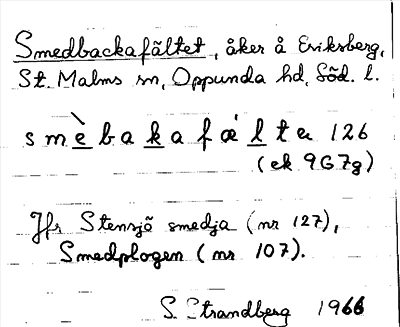 Smedbackafältet, åker å Eriksberg,
St. Malms sn, Oppunda hd, Söd. l.
smèbakafæ´lta 126
(ek 9G7g)
Jfr Stensjö smedja (nr 127),
Smedplogen (nr 107).
S. Strandberg 1966